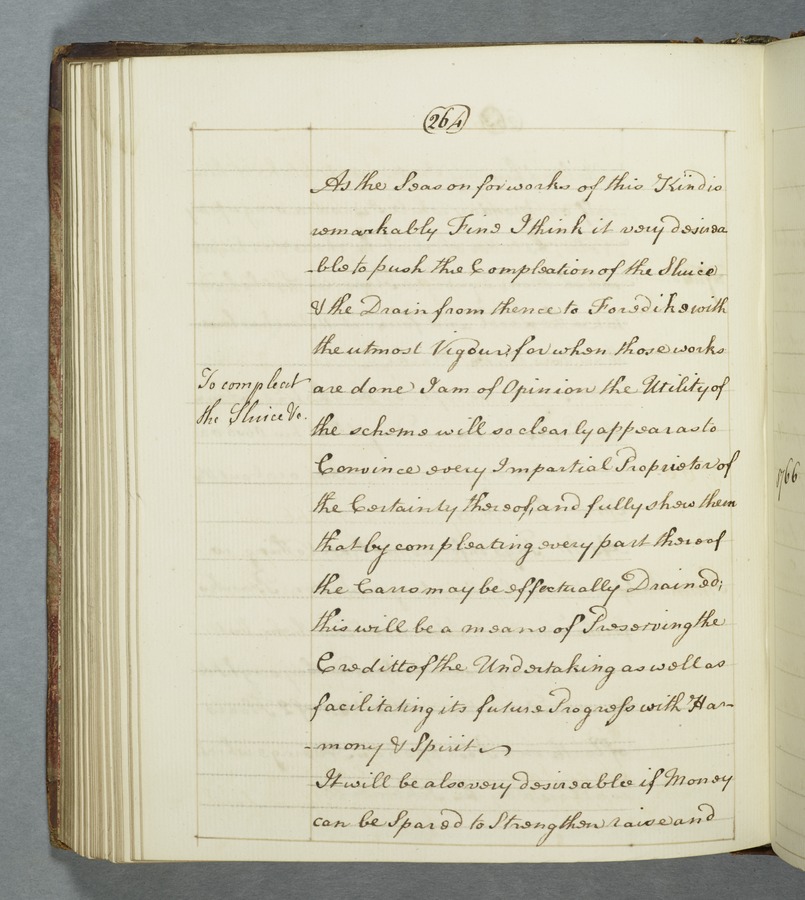 264
As the Season for works of this Kind is
remarkably Fine I think it very desirea
-ble to push the Compleation of the Sluice
& the Drain from thence to Foredike with
the utmost Vigour, for when those works
To compleat
the Sluice &c.
are done I am of Opinion the Utility of
the scheme will so clearly appear as to
Convince every Impartial Proprietor of
the Certainty thereof, and fully shew them
that by compleating every part thereof
the Carrs may be effectually Drained;
this will be a means of Preserving the
Creditt of the Undertaking as well as
facilitating its future Progress with Har-
-mony & Spirit
It will be also very desireable if Money
can be Spared to Strengthen raise and
1766